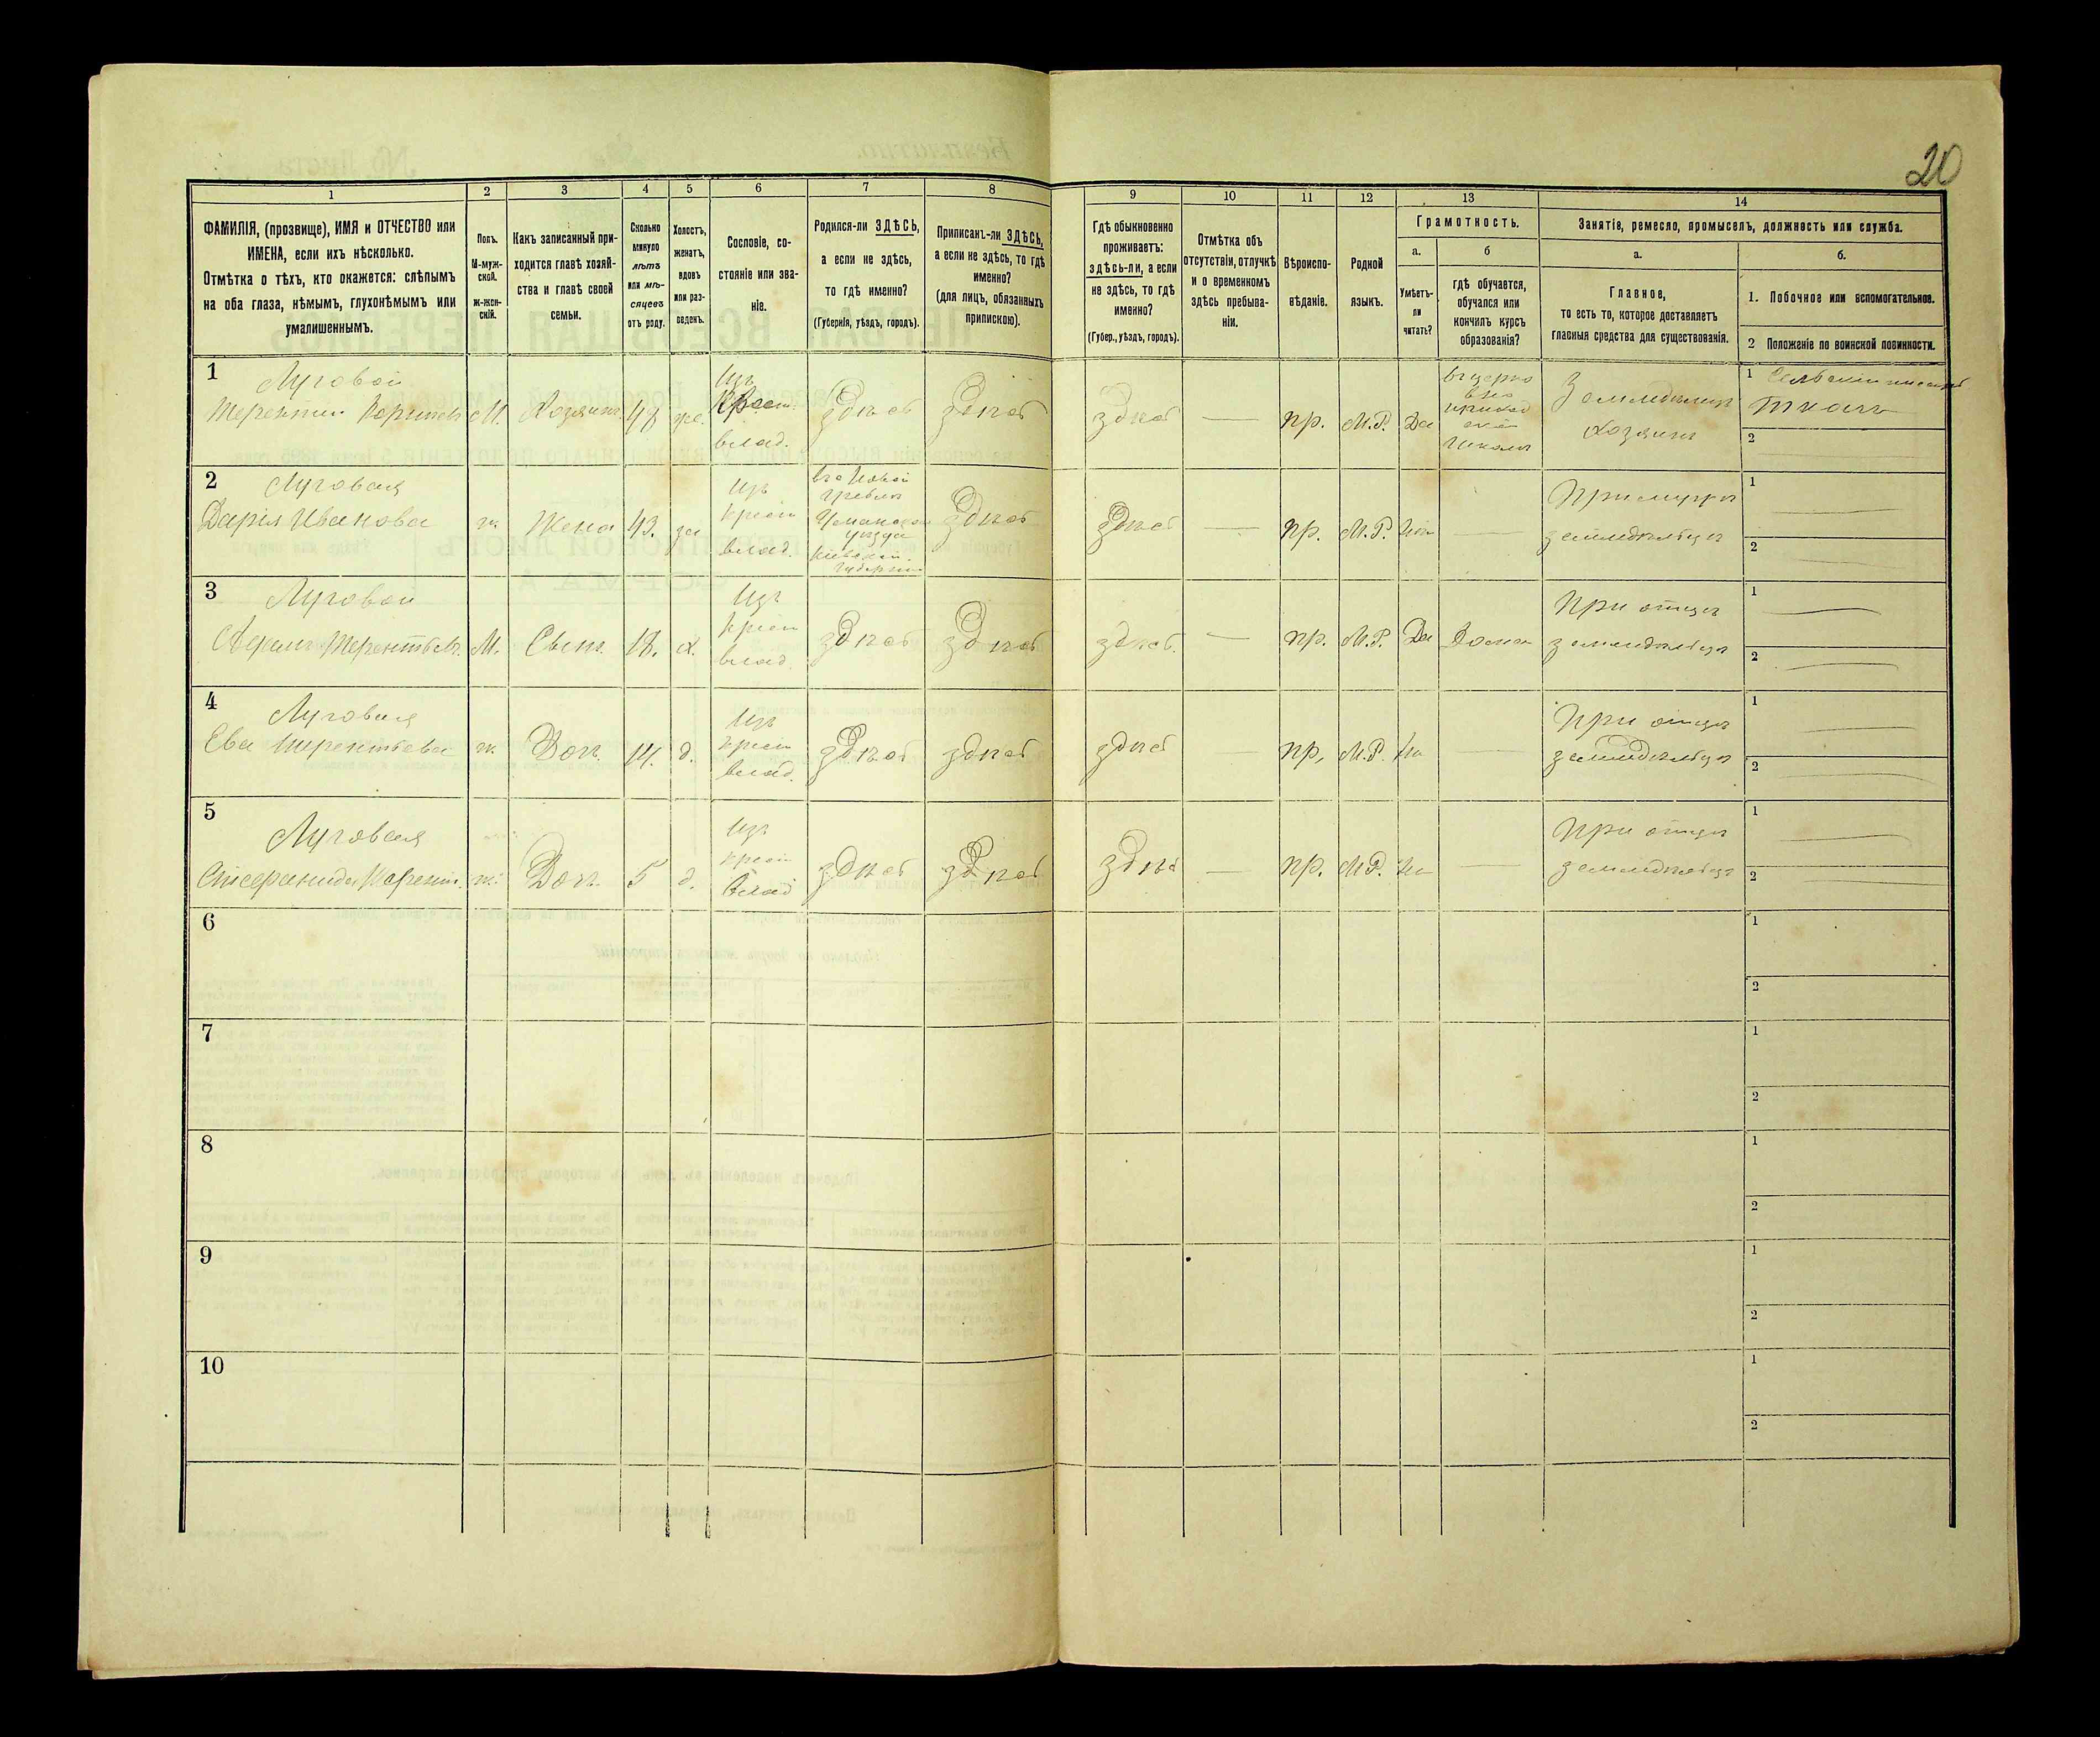 20
1
2
3
4
5
6
7
8
9
10
11
12
13
14
ФАМИЛІЯ, (прозвище), ИМЯ и ОТЧЕСТВО или
ИМЕНА, если ихъ нѣсколько.
Отмѣтка о тѣхъ, кто окажется: слѣпымъ
на оба глаза, нѣмымъ, глухонѣмымъ или
умалишеннымъ.
Полъ.
М-муж-
ской.
ж-жен-
скій.
Какъ записанный при-
ходится главѣ хозяй-
ства и главѣ своей
семьи.
Сколько
минуло
лѣтъ
или мѣ-
сяцевъ
отъ роду.
Холостъ,
женатъ,
вдовъ
или раз-
веденъ.
Сословіе, со-
стояніе или зва-
ніе.
Родился-ли ЗДѢСЬ,
а если не здѣсь,
то гдѣ именно?
(Губернія, уѣздъ, городъ).
Приписанъ-ли ЗДѢСЬ,
а если не здѣсь, то гдѣ
именно?
(для лицъ, обязанныхъ
припискою).
Гдѣ обыкновенно
проживаетъ:
здѣсь-ли, а если
не здѣсь, то гдѣ
именно?
(Губер., уѣздъ, городъ).
Отмѣтка объ
отсутствіи, отлучкѣ
и о временномъ
здѣсь пребыва-
ніи.
Вѣроиспо-
вѣданіе.
Родной
языкъ.
Грамотность.
а.
Умѣетъ-
ли
читать?
б
гдѣ обучается,
обучался или
кончилъ курсъ
образованія?
Занятіе, ремесло, промыселъ, должность или служба.
а.
Главное,
то есть то, которое доставляетъ
главныя средства для существованія.
б.
1. Побочное или вспомогательное.
2 Положеніе по воинской повинности.
1
Луговой
Терентій
М.
Хозяинъ
48
же.
Изъ
Крест.
влад.
здѣсь
здѣсь
здѣсь
—
пр.
М.Р.
Да
школѣ
Хозяинъ
1
Ткачъ
2
2
Луговая
Дарія Иванова
ж.
Жена
43.
за
Изъ
крест
влад.
Уманскаго
уѣзда
Кіевской
губерніи
здѣсь
здѣсь
—
пр.
М.Р.
Нѣ
—
При мужѣ
земледѣлецъ
1
2
3
Луговой
Терентьев.
М.
Сынъ
18.
х.
Изъ
крест
влад.
здѣсь
здѣсь
здѣсь.
—
пр.
М.Р.
Да
Дома
При отцѣ
земледѣлецъ
1
2
4
Луговая
Ева Терентьева
ж.
Доч.
14.
д.
Изъ
крест
влад.
здѣсь
здѣсь
здѣсь
—
пр.
М.Р.
Не
—
При отцѣ
земледѣлецъ
1
2
5
Луговая
Стефанида Терент.
ж.
Доч.
5
д.
Изъ
крест
влад
здѣсь
здѣсь
здѣсь
—
пр.
М.Р.
Не
—
При отцѣ
земледѣлецъ
1
2
6
1
2
7
1
2
8
1
2
9
1
2
10
1
2